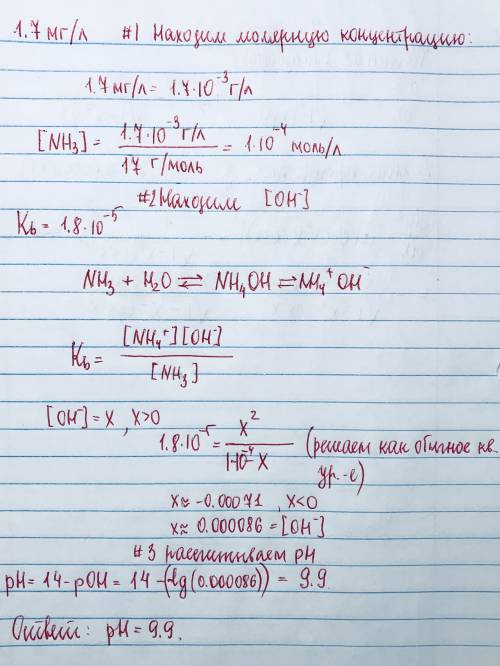 1.7 мг/л #1 Находим молярную концентрацию:
1.7 мг/л = 1.7·10⁻³ г/л
[NH₃] = 1.7·10⁻³ г/л / 17 г/моль = 1·10⁻⁴ моль/л
#2 Находим [OH⁻]
Kb = 1.8·10⁻⁵
NH₃ + H₂O ⇄ NH₄OH ⇄ NH₄⁺ OH⁻
Kb = [NH₄⁺][OH⁻] / [NH₃]
[OH⁻] = x , x>0
1.8·10⁻⁵ = x² / 1·10⁻⁴ x (решаем как обычное кв. ур.-е)
x ≈ -0.00071 , x<0
x ≈ 0.000086 = [OH⁻]
#3 рассчитываем pH
pH = 14 - pOH = 14 - (-lg(0.000086)) = 9.9
Ответ: pH = 9.9.